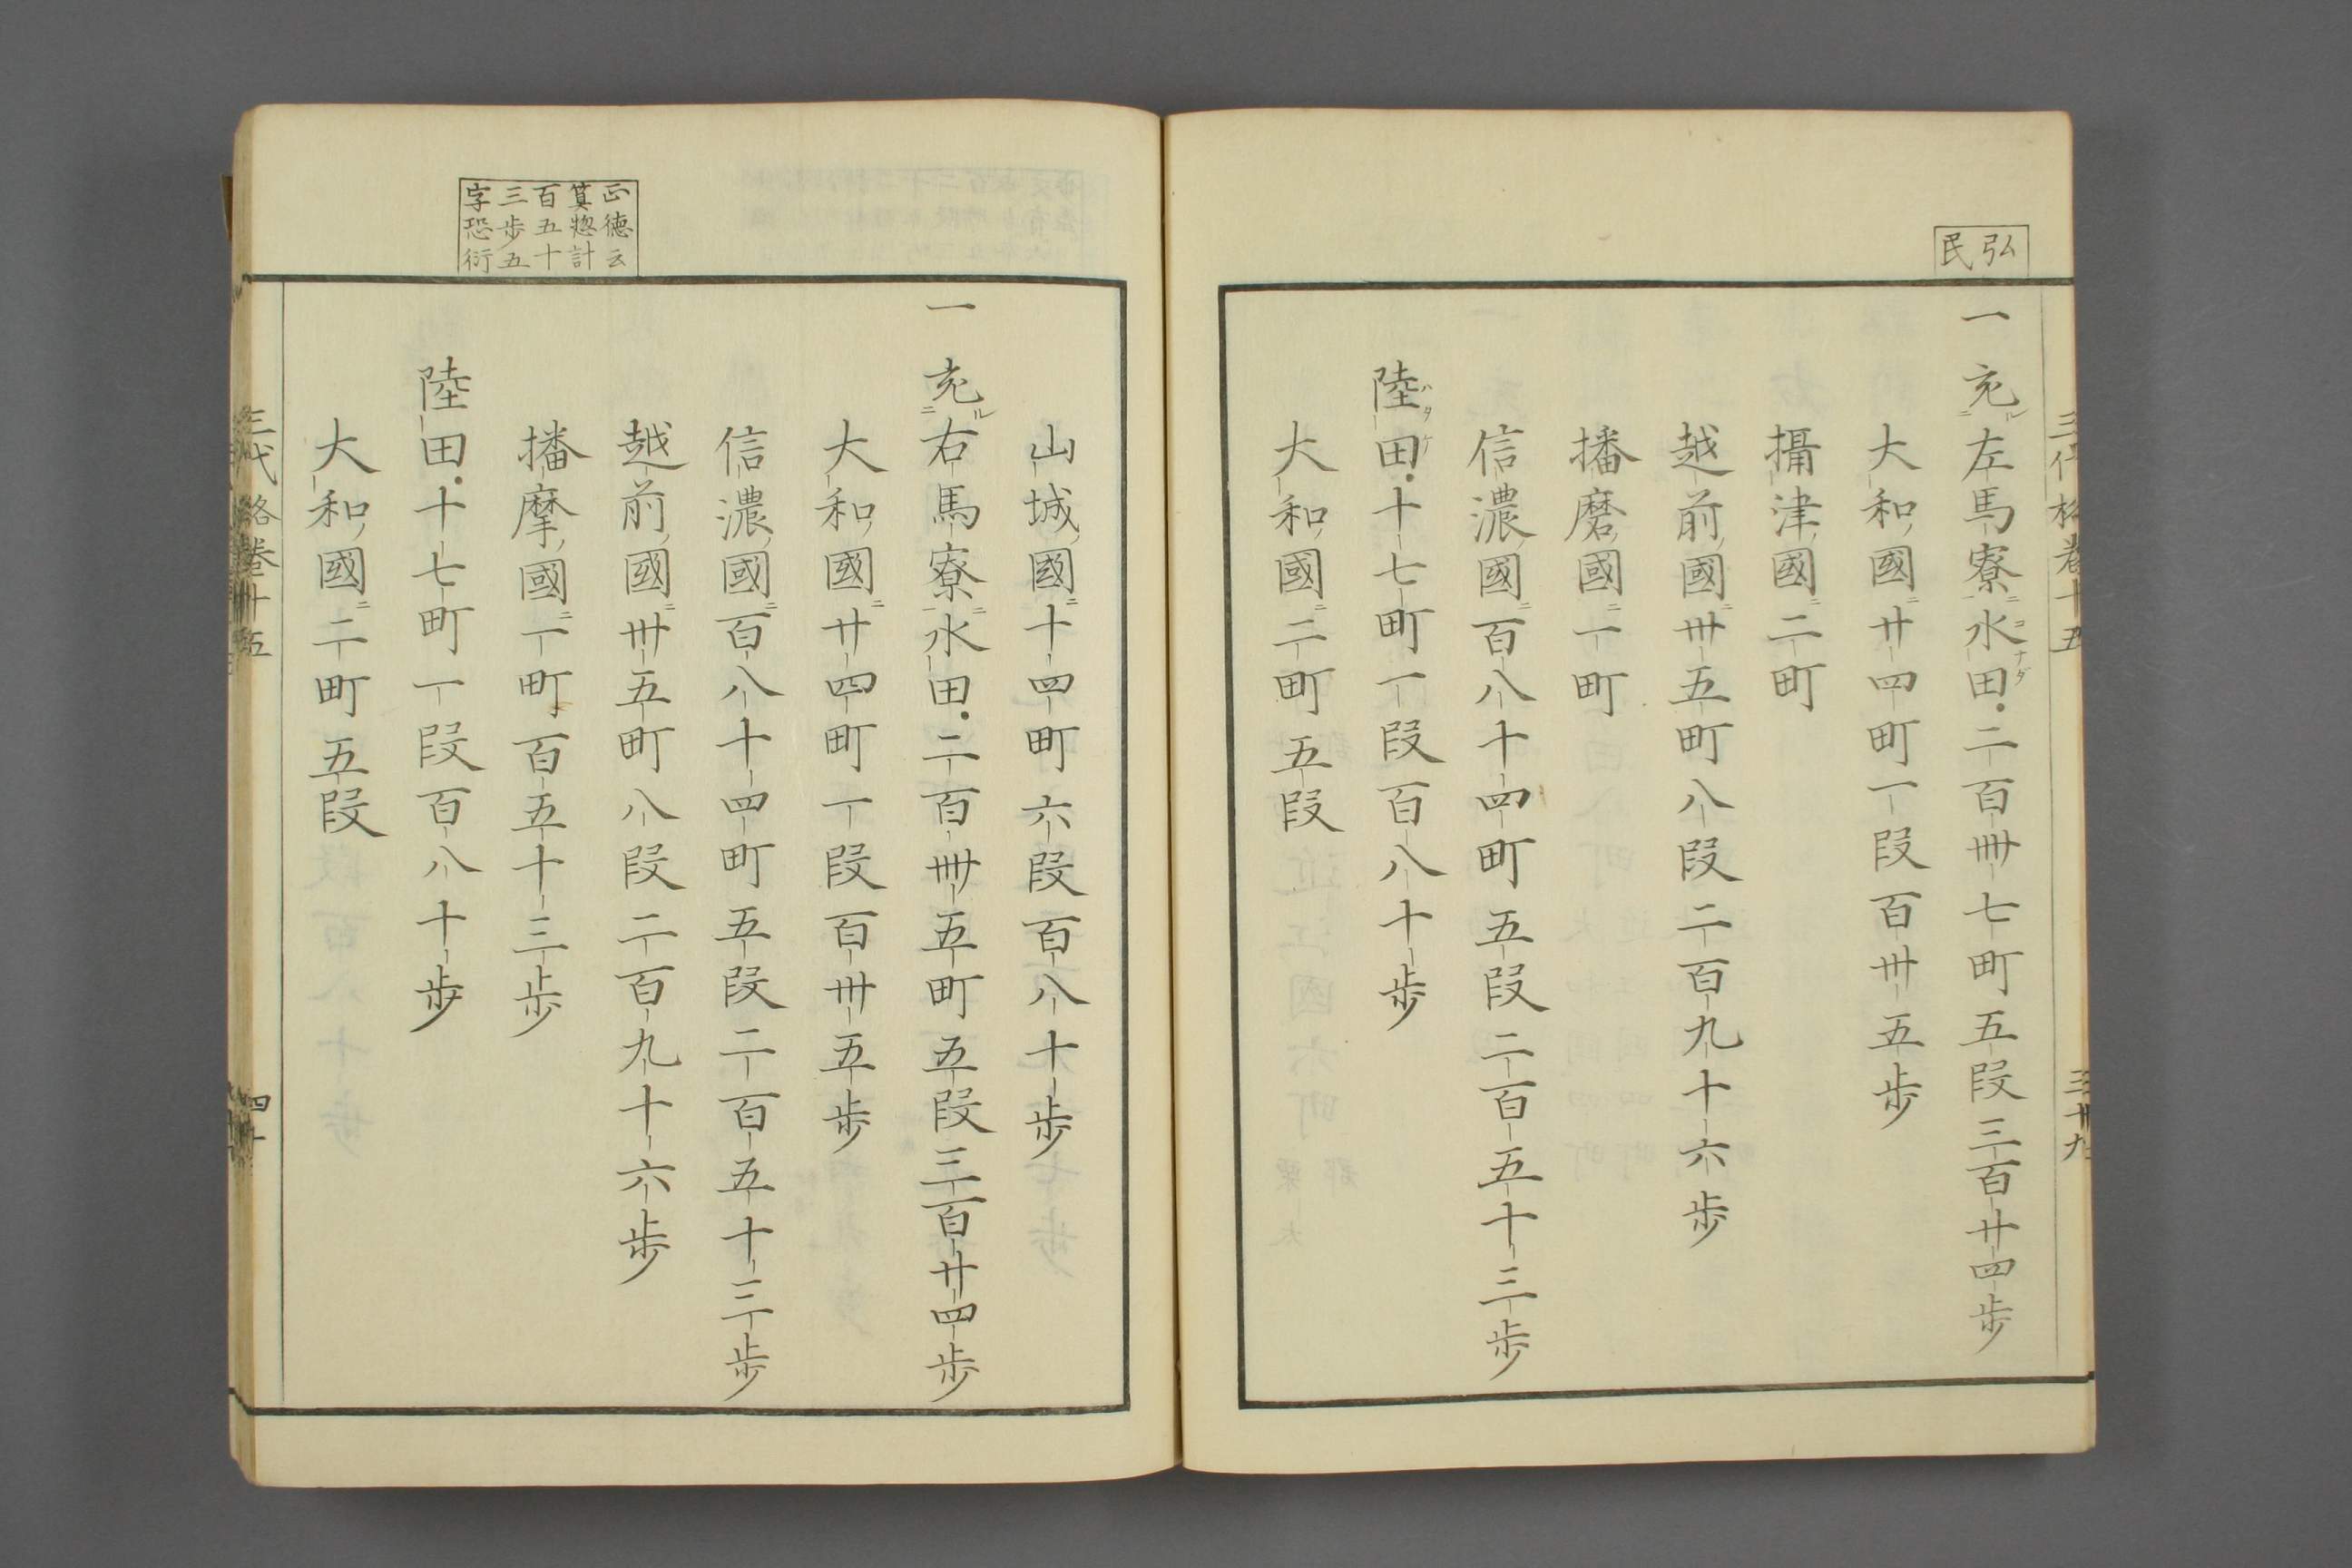 弘
民
三代格卷十五
三十九
一充左馬寮水田二百卌七町五段三百廿四歩
大和國廿四町一段百卅五歩
攝津國二町
越前國卅五町八段二百九十六歩
播磨國一町
信濃國百八十四町五段二百五十三歩
陸田十七町一段百八十歩
大和國二町五段
山城國十四町六段百八十歩
一充右馬寮水田二百卌五町五段三百廿四歩
大和國廿四町一段百卅五歩
信濃國百八十四町五段二百五十三歩
越前國卅五町八段二百九十六歩
播摩國一町百五十三歩
陸田十七町一段百八十歩
大和國二町五段
正德云
箕惣計
百五十
三歩五
字恐衍
三代格卷十五
四十